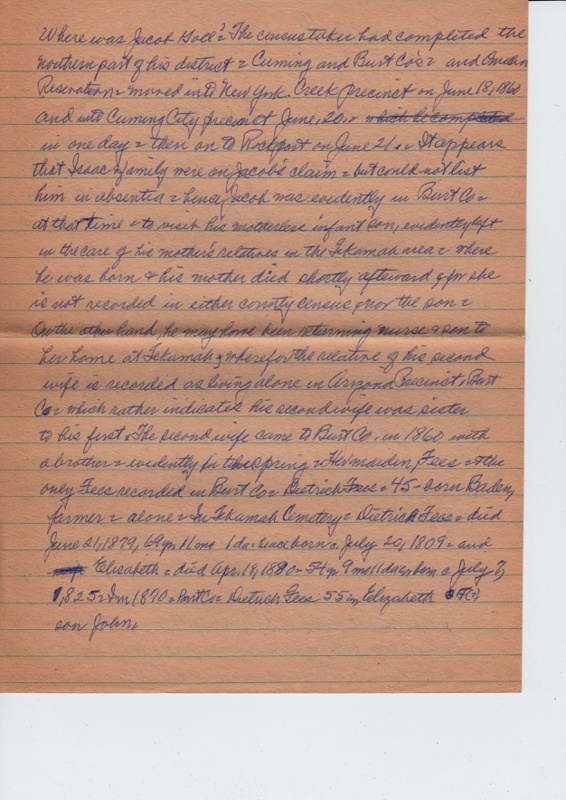 Where was Jacob Goll? The census taker had completed the
Northern part of his district = Cuming and Burt Co's = and Omaha
Reservation = moved into New York Creek precinct on June 18, 1860
and into Cuming City precinct June, 20, = which he completed
in one day = then on to Rockport on June 21 = It appears
that Isaac & family were on Jacob's claim = but could not list
him in absentia = hence, Jacob was evidently in Burt Co =
at that time = to visit his motherless infant son, evidently left
in the care of his mother's relatives in the Tekamah area = where
he was born & his mother died shortly afterward, for she
is not recorded in either county census, nor the son =
On the other hand, he may have been returning nurse & son to
her home at Tekamah, wherefor the relative of his second
wife is recorded as living alone in Arizona Precinct, Burt
Co = which rather indicates his second wife was sister
to his first. The second wife came to Burt Co. in 1860 with
a brother = evidently in the spring = Her maiden, Fees = & the
only Fees recorded in Burt Co = Dietrich Fees = 45 - born Baden,
farmer = alone = In Tekamah Cemetery = Dietrich Fees = died
June 21, 1879, 69 yr 11 mo 1 da. hence born c. July 20, 1809 = and
Elisabeth = died Apr. 18, 1880 - 54 yr 9 mo 11 da, born c July 7,
1,825 = In 1870 = Burt Co = Dietrich Fees 55 = Elizabeth (?)
son John,